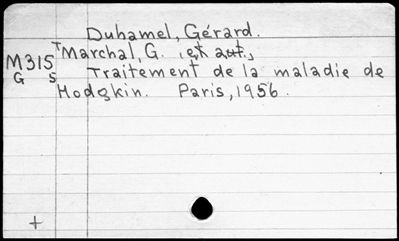 Duhamel, Gérard.
Marchal, G. [et aut.]
M315 Traitement de la maladie de
G S
Hodgkin. Paris, 1956.
+